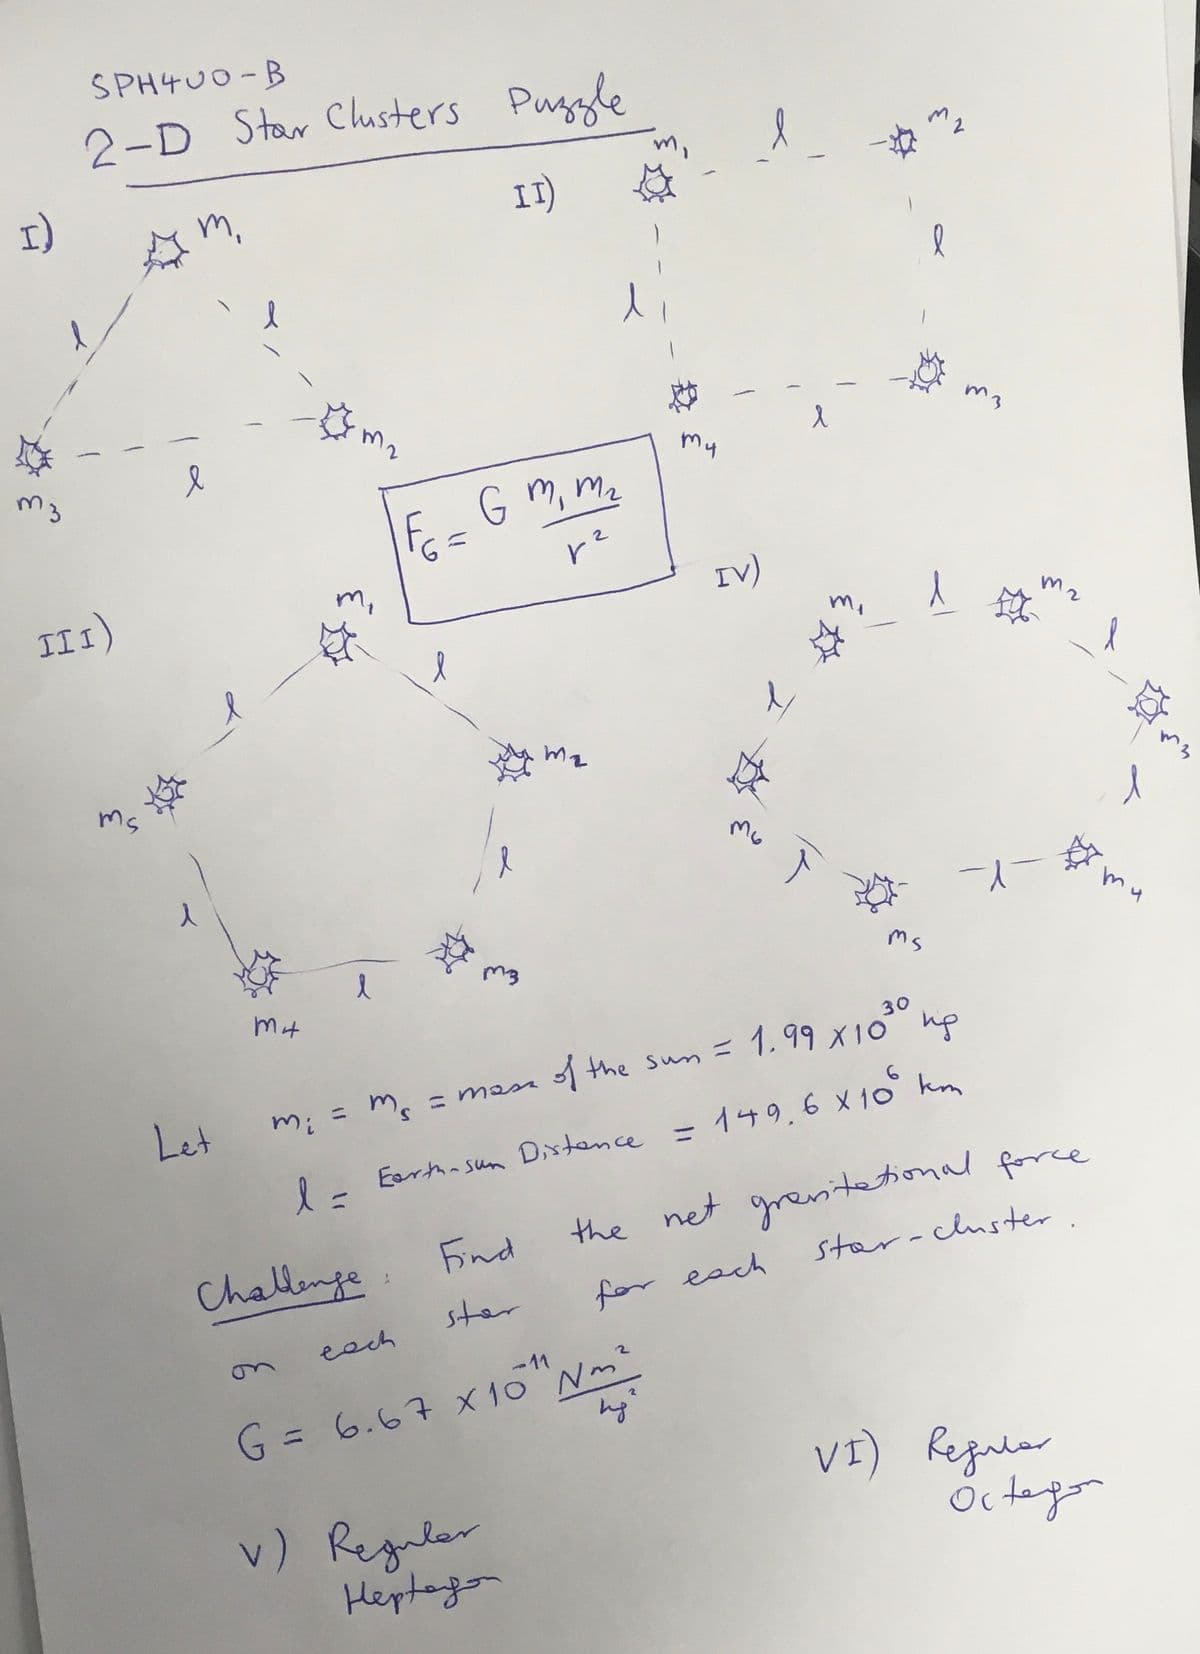 SPH4U0-B
2-D Star Clusters Puzzle
I)
m₁
l
l
m₂
l
m₃
II)
m₁
l
m₂
l
l
m₃
l
m₄
F_G = G m₁ m₂ / r²
III)
m₁
l
l
m₂
m₅
l
l
m₃
l
m₄
IV)
m₁
l
m₂
l
l
m₃
l
m₆
l
l
m₄
m₅
Let mᵢ = mₛ = mass of the sun = 1.99 x 10³⁰ kg
l = Earth-sun Distance = 149.6 x 10⁶ km
Challenge: Find the net gravitational force
on each star for each star-cluster.
G = 6.67 x 10⁻¹¹ Nm²/kg²
V) Regular
Heptagon
VI) Regular
Octagon